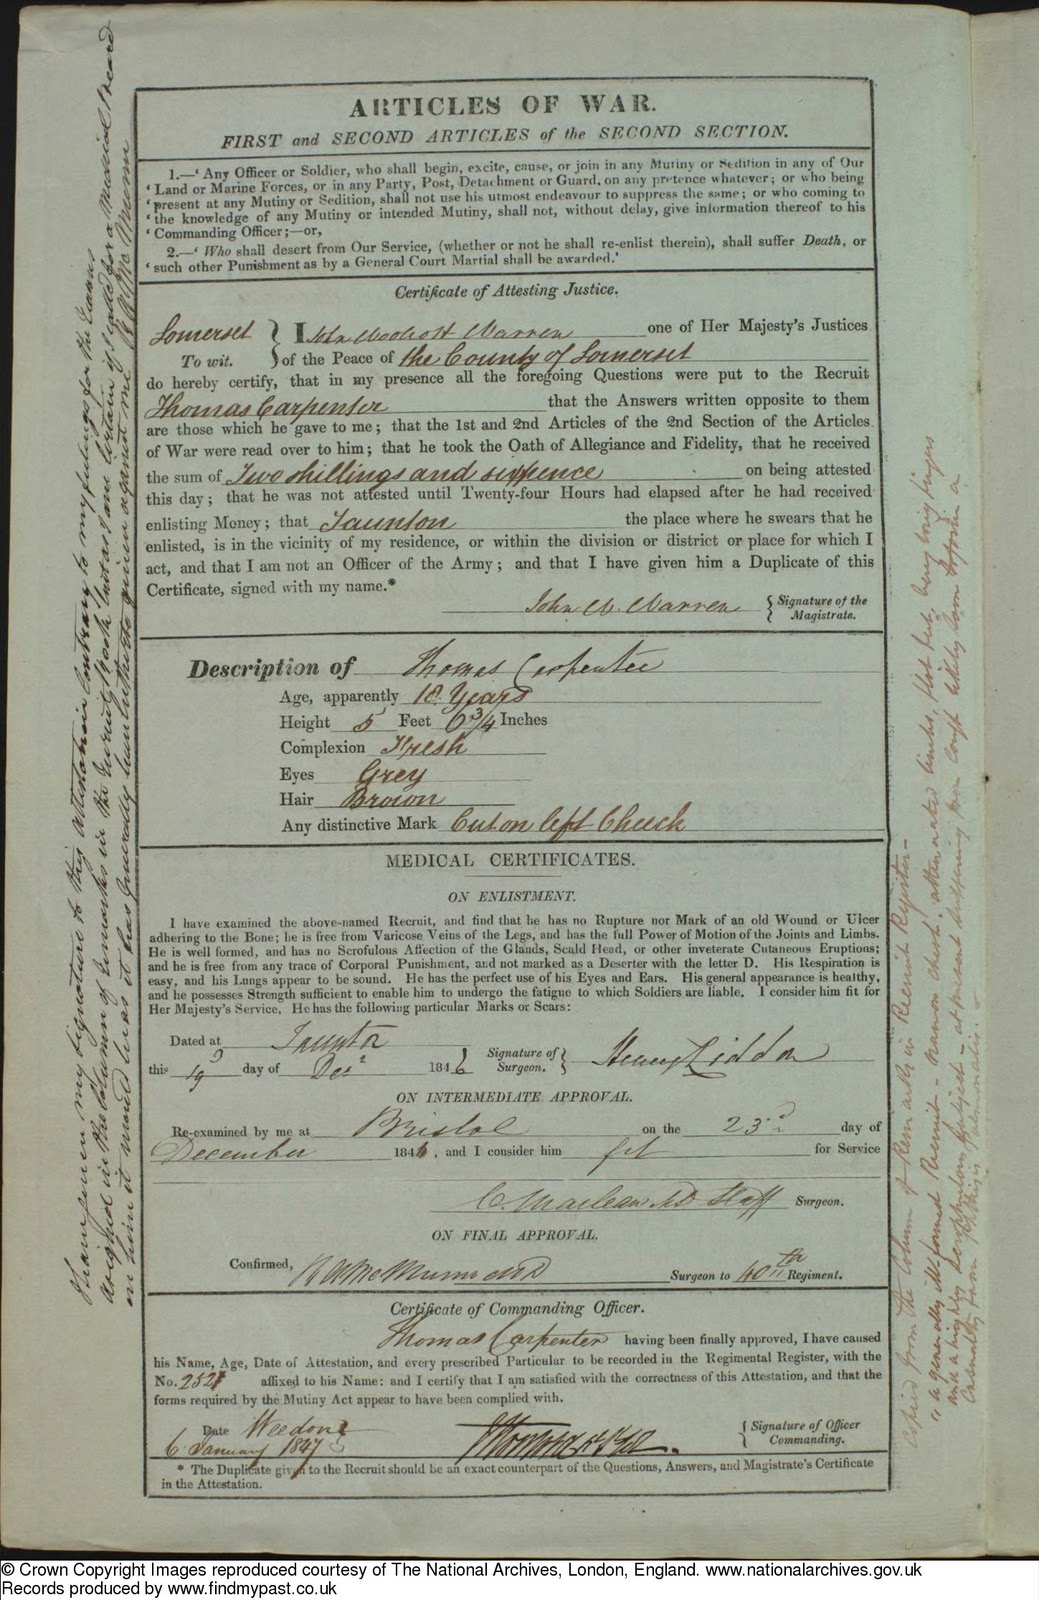 ARTICLES OF WAR.
FIRST and SECOND ARTICLES of the SECOND SECTION.
1.—‘ Any Officer or Soldier, who shall begin, excite, cause, or join in any Mutiny or Sedition in any of Our
‘ Land or Marine Forces, or in any Party, Post, Detachment or Guard, on any pretence whatever; or who being
‘ present at any Mutiny or Sedition, shall not use his utmost endeavour to suppress the same; or who coming to
‘ the knowledge of any Mutiny or intended Mutiny, shall not, without delay, give information thereof to his
‘ Commanding Officer;—or,
2.—‘ Who shall desert from Our Service, (whether or not he shall re-enlist therein), shall suffer Death, or
‘ such other Punishment as by a General Court Martial shall be awarded.’
Certificate of Attesting Justice.
Somerset } I John Woolcott Warren one of Her Majesty's Justices
To wit. } of the Peace of the County of Somerset
do hereby certify, that in my presence all the foregoing Questions were put to the Recruit
Thomas Carpenter that the Answers written opposite to them
are those which he gave to me; that the 1st and 2nd Articles of the 2nd Section of the Articles
of War were read over to him; that he took the Oath of Allegiance and Fidelity, that he received
the sum of Two shillings and sixpence on being attested
this day; that he was not attested until Twenty-four Hours had elapsed after he had received
enlisting Money; that Taunton the place where he swears that he
enlisted, is in the vicinity of my residence, or within the division or district or place for which I
act, and that I am not an Officer of the Army; and that I have given him a Duplicate of this
Certificate, signed with my name.*
John W. Warren { Signature of the
Magistrate.
Description of Thomas Carpenter
Age, apparently 18 Years
Height 5 Feet 6 3/4 Inches
Complexion Fresh
Eyes Grey
Hair Brown
Any distinctive Mark Cut on left Cheek
MEDICAL CERTIFICATES.
ON ENLISTMENT.
I have examined the above-named Recruit, and find that he has no Rupture nor Mark of an old Wound or Ulcer
adhering to the Bone; he is free from Varicose Veins of the Legs, and has the full Power of Motion of the Joints and Limbs.
He is well formed, and has no Scrofulous Affection of the Glands, Scald Head, or other inveterate Cutaneous Eruptions;
and he is free from any trace of Corporal Punishment, and not marked as a Deserter with the letter D. His Respiration is
easy, and his Lungs appear to be sound. He has the perfect use of his Eyes and Ears. His general appearance is healthy,
and he possesses Strength sufficient to enable him to undergo the fatigue to which Soldiers are liable. I consider him fit for
Her Majesty's Service. He has the following particular Marks or Scars:
Dated at Taunton
this 19 day of Decr 1846 Signature of Surgeon. } Henry Liddon
ON INTERMEDIATE APPROVAL.
Re-examined by me at Bristol on the 23rd day of
December 1846, and I consider him fit for Service
C. Maclean MD Staff Surgeon.
ON FINAL APPROVAL.
Confirmed, Surgeon to 40th Regiment.
Certificate of Commanding Officer.
Thomas Carpenter having been finally approved, I have caused
his Name, Age, Date of Attestation, and every prescribed Particular to be recorded in the Regimental Register, with the
No. 2521 affixed to his Name: and I certify that I am satisfied with the correctness of this Attestation, and that the
forms required by the Mutiny Act appear to have been complied with.
Date Weedon
6 January 1847 { Signature of Officer
Commanding.
* The Duplicate given to the Recruit should be an exact counterpart of the Questions, Answers, and Magistrate's Certificate
in the Attestation.
I have given my signature to this attestation contrary to my feelings for the reasons
assigned in the column of remarks in the Recruit book but as I am certain if I called for a medical board
on him it would be as it has generally hitherto given against me
Copied from the Column of Remarks in Recruit Register—
"a generally ill formed Recruit - narrow chest, attenuated limbs, flat feet, long fingers
and a highly scrofulous subject - at present suffering from cough likely soon to prove a
Casualty from Pthisis Pulmonalis" -
© Crown Copyright Images reproduced courtesy of The National Archives, London, England. www.nationalarchives.gov.uk
Records produced by www.findmypast.co.uk